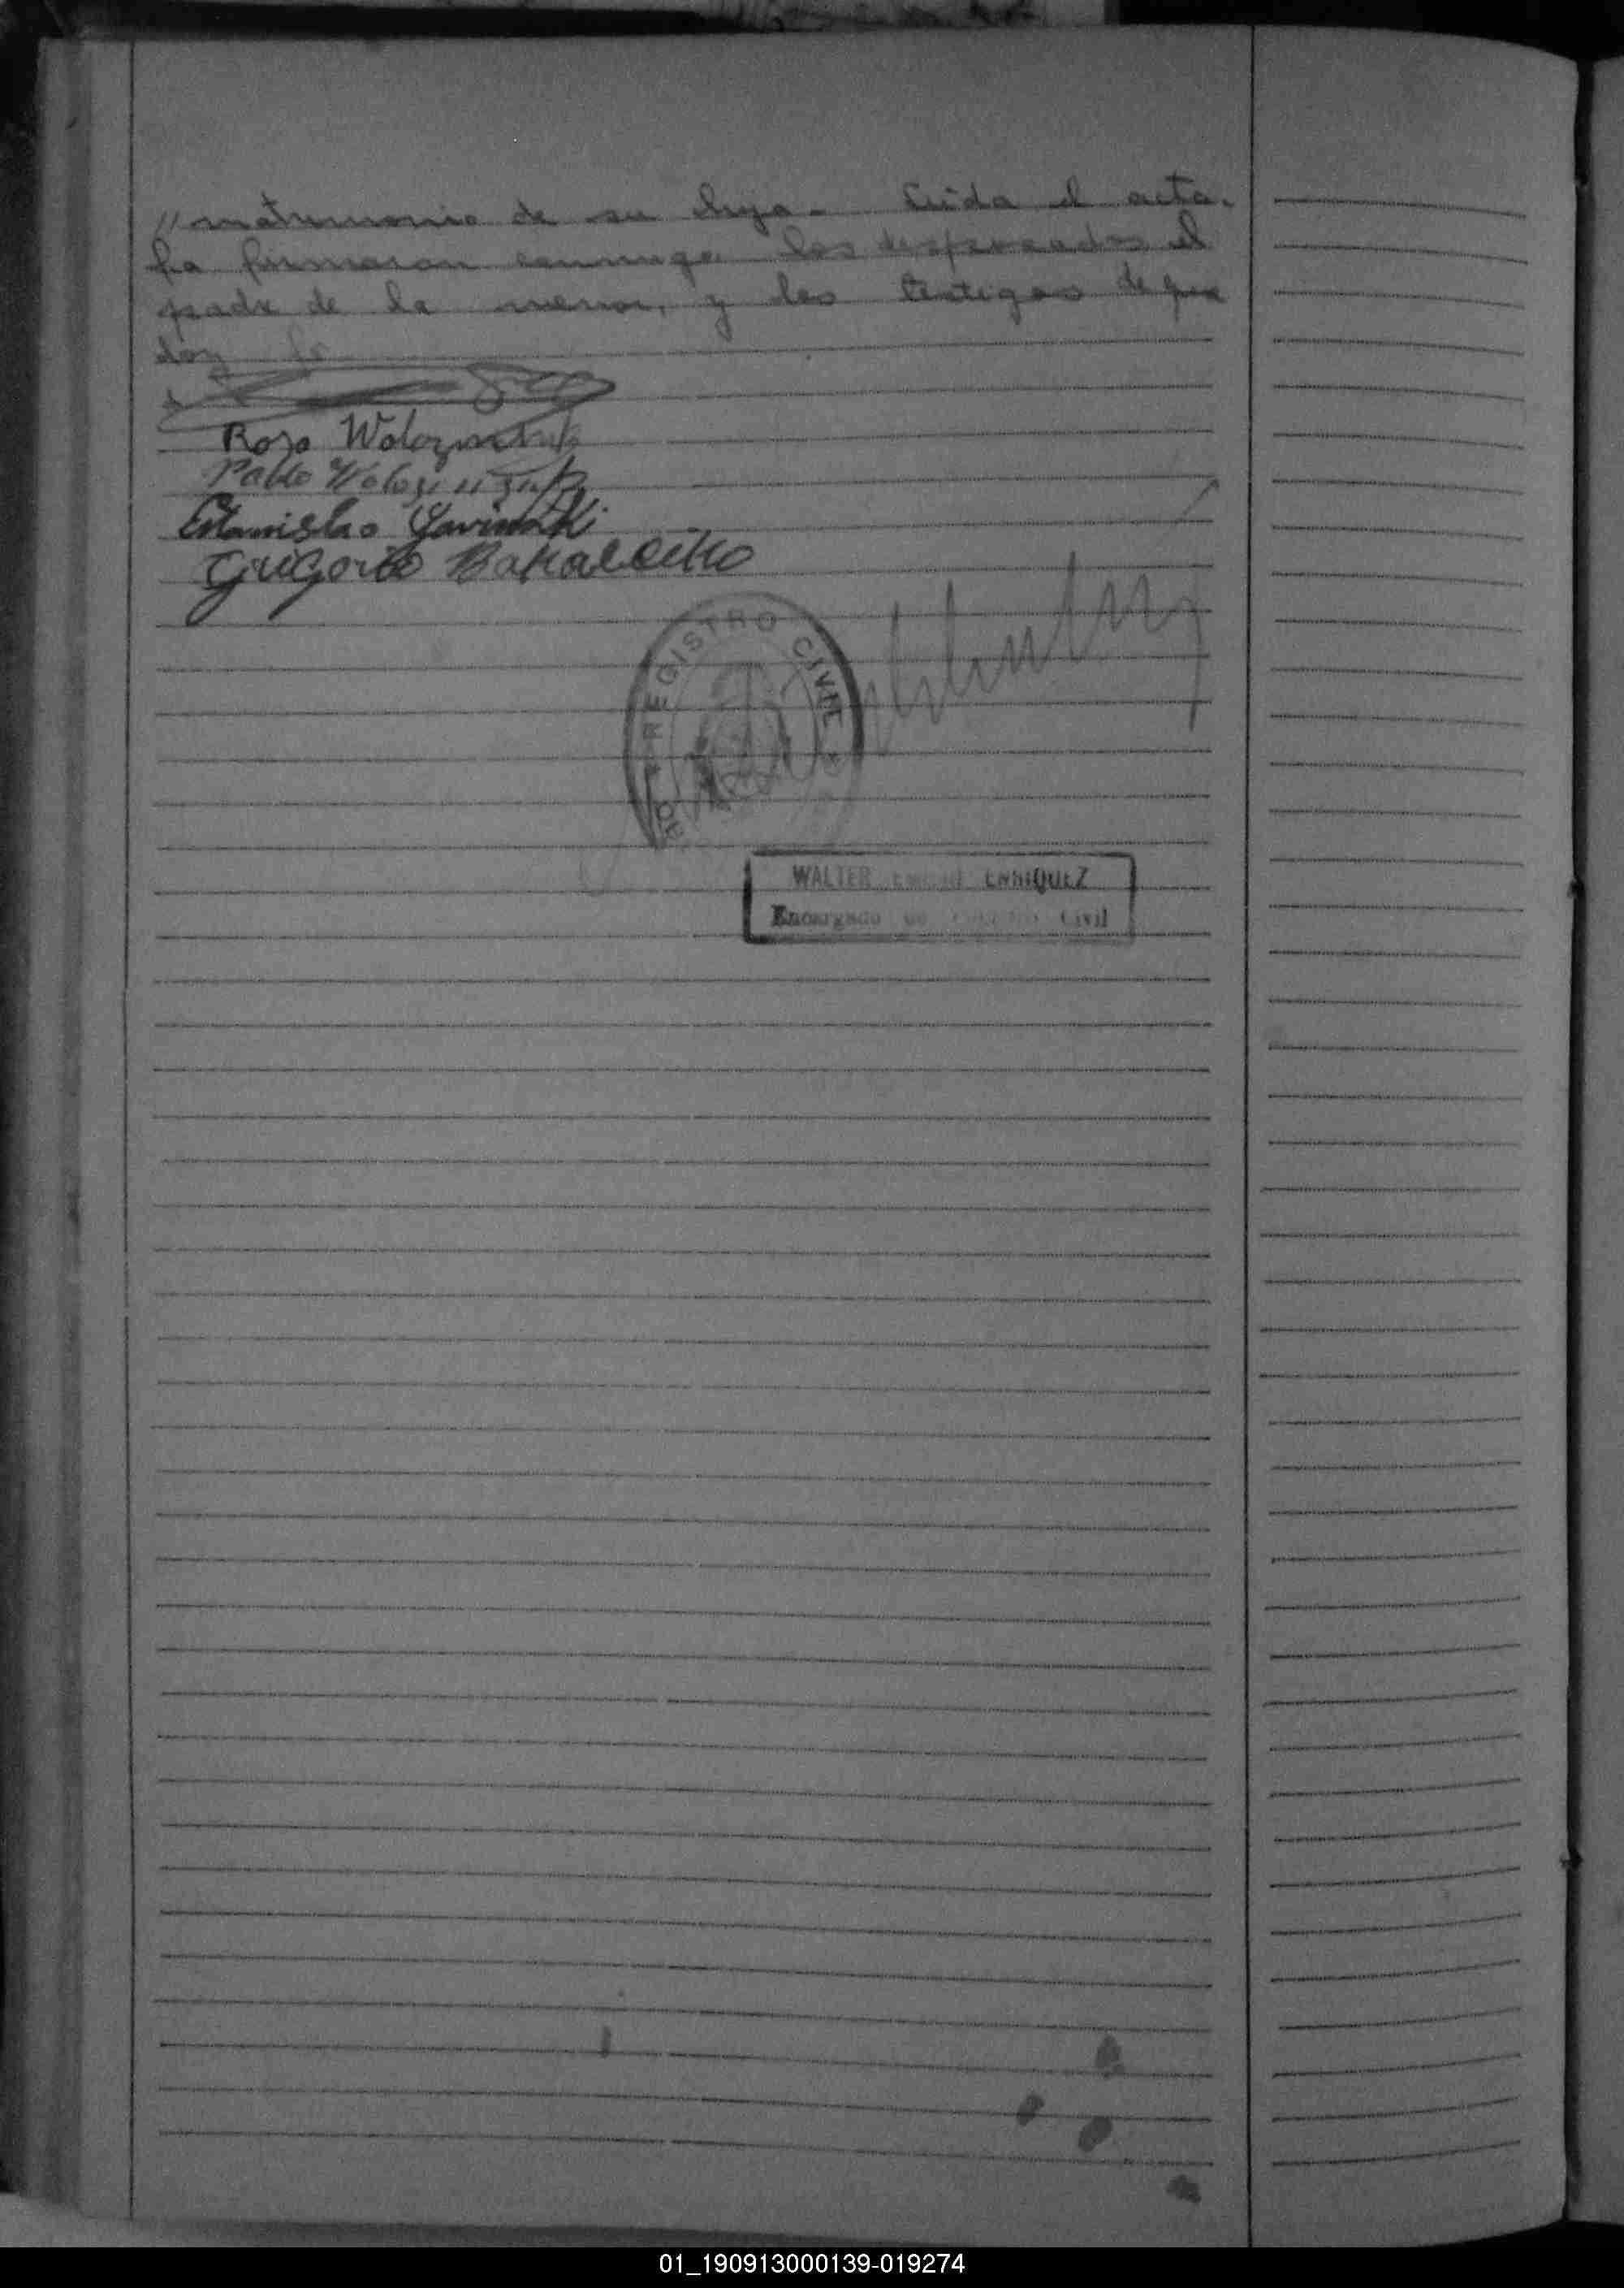 " matrimonio de su hija - Leida el acta.
la firmaron conmigo los desposados el
padre de la menor, y los testigos de que
doy fe
Rosa
Pablo
Estanislao
Grigorio
REGISTRO CIVIL
WALTER ENRIQUEZ
Encargado Civil
01_190913000139-019274